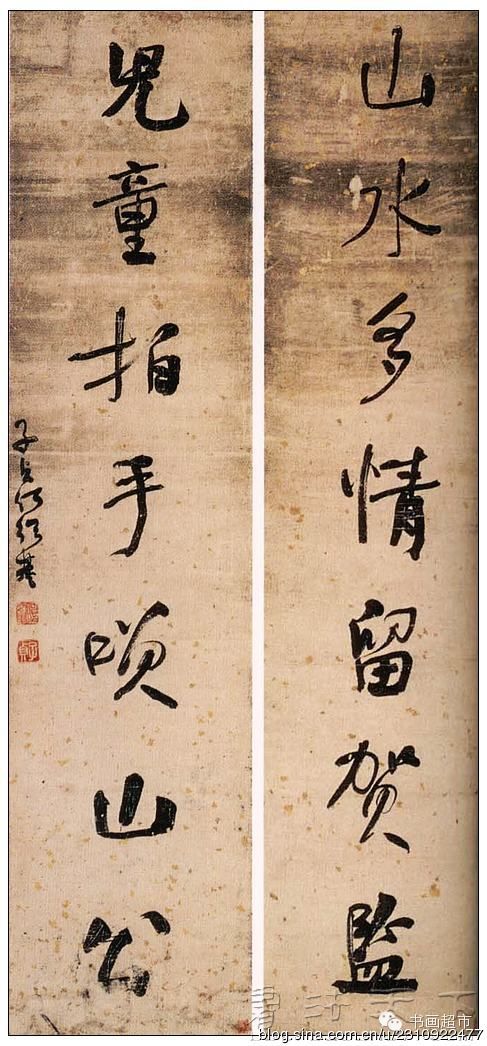 山水多情留賀監
兒童拍手喚山公
子貞何紹基
子貞
书画超市
blog.sina.com.cn/u/2310922477